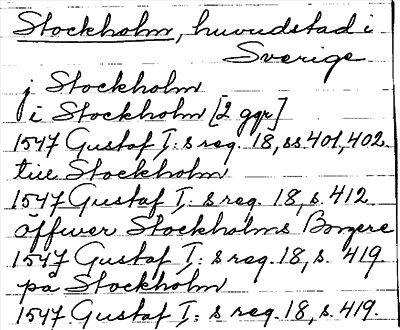 Stockholm, huvudstad i
Sverige
j Stockholm
i Stockholm [2 ggr]
1547 Gustaf I: s reg. 18, ss 401, 402.
till Stockholm
1547 Gustaf I: s reg. 18, s. 412
öffwer Stockholms Borgere
1547 Gustaf I: s reg. 18, s. 419
på Stockholm
1547 Gustaf I: s reg. 18, s. 419.